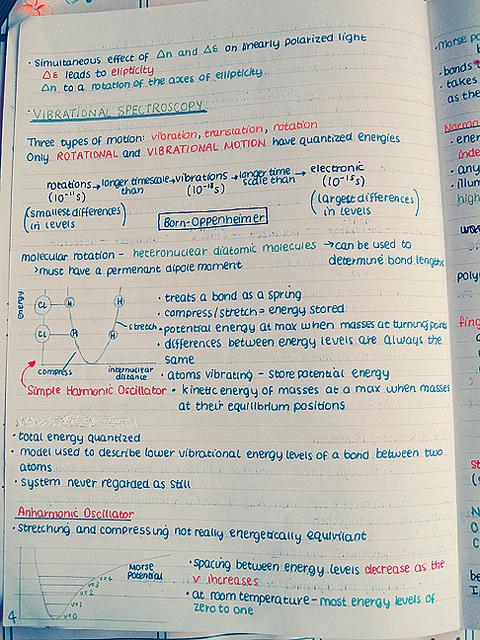 • Simultaneous effect of Δn and Δε on linearly polarized light
Δε leads to elipticity
Δn to a rotation of the axes of ellipticity
VIBRATIONAL SPECTROSCOPY
Three types of motion: vibration, translation, rotation
Only ROTATIONAL and VIBRATIONAL MOTION have quantized energies
rotations → longer timescale than → vibrations → longer time scale than → electronic
(10⁻¹¹s) (10⁻¹³s) (10⁻¹⁵s)
(smallest differences in levels) Born-Oppenheimer (largest differences in levels)
molecular rotation - heteronuclear diatomic molecules → can be used to
> must have a permenant dipole moment determine bond lengths
Energy
Cl H H
Cl H H
stretch
compress
internuclear distance
Simple Harmonic Oscillator
• treats a bond as a spring
• compress/stretch = energy stored
• potential energy at max when masses at turning points
• differences between energy levels are always the
same
• atoms vibrating - store potential energy
• kinetic energy of masses at a max when masses
at their equilibrium positions
• total energy quantized
• model used to describe lower vibrational energy levels of a bond between two
atoms
• system never regarded as still
Anharmonic Oscillator
• stretching and compressing not really energetically equivilant
Morse Potential
v=4
v=3
v=2
v=1
v=0
• spacing between energy levels decrease as the
v increases
• at room temperature - most energy levels of
zero to one
4
• Morse po
• bonds
• takes
as the
Norma
• ener
inde
• any
• illum
high
polyn
fing